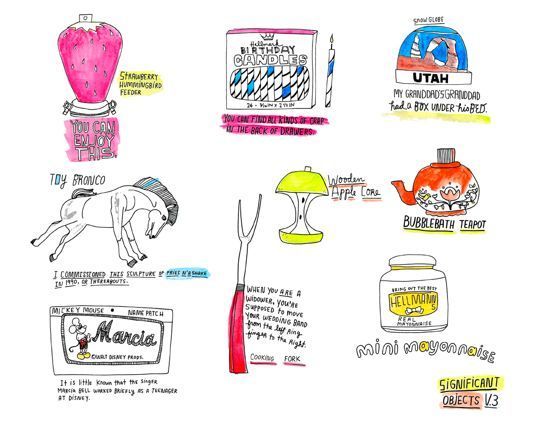 STRAWBERRY
HUMMINGBIRD
FEEDER
YOU CAN
ENJOY
THIS.
Hallmark
BIRTHDAY
CANDLES
YOU CAN FIND ALL KINDS OF CRAP
IN THE BACK OF DRAWERS.
SNOW GLOBE
UTAH
MY GRANDDAD'S GRANDDAD
had a BOX UNDER his BED.
TOY BRONCO
I COMMISSIONED THIS SCULPTURE OF FRIES N' A SHAKE
IN 1990, OR THEREABOUTS.
Wooden
Apple Core
BUBBLEBATH TEAPOT
MICKEY MOUSE NAME PATCH
Marcia
©WALT DISNEY PRODS.
It is little known that the singer
MARCIA BELL WORKED BRIEFLY AS A TEENAGER
AT DISNEY.
WHEN YOU ARE A
WIDOWER, YOU'RE
SUPPOSED TO MOVE
YOUR WEDDING BAND
from the left ring
finger to the right.
COOKING FORK
BRING OUT THE BEST
HELLMANN'S
REAL
MAYONNAISE
mini mayonnaise
SIGNIFICANT
OBJECTS V.3